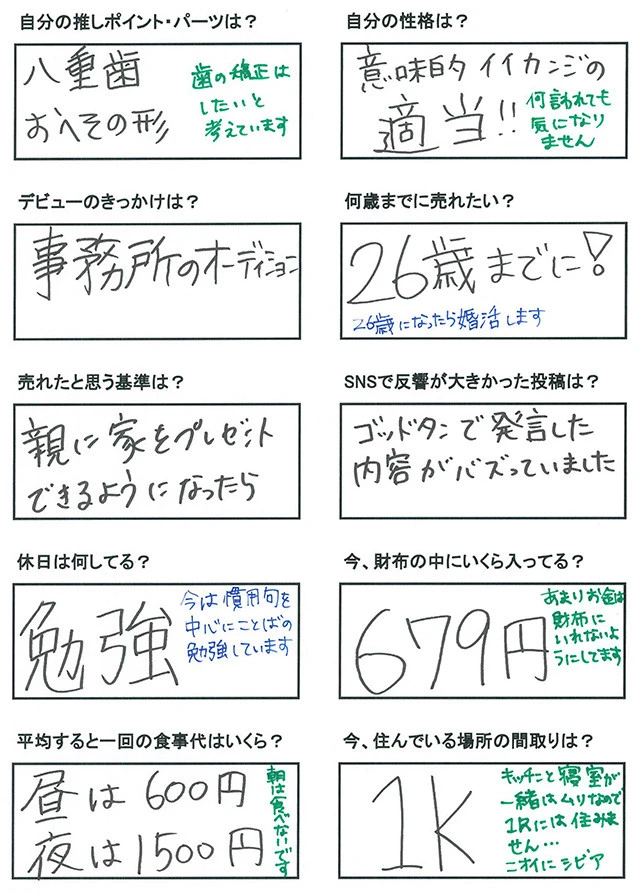 自分の推しポイント・パーツは？
八重歯
おへその形
歯の矯正は
したいと
考えています
自分の性格は？
意味的イイカンジの
適当!!
何言われても
気になり
ません
デビューのきっかけは？
事務所のオーディション
何歳までに売れたい？
26歳までに!
26歳になったら婚活します
売れたと思う基準は？
親に家をプレゼント
できるようになったら
SNSで反響が大きかった投稿は？
ゴッドタンで発言した
内容がバズっていました
休日は何してる？
勉強
今は慣用句を
中心にことばの
勉強しています
今、財布の中にいくら入ってる？
679円
あまりお金は
財布に
いれないよ
うにしてます
平均すると一回の食事代はいくら？
昼は600円
夜は1500円
朝は食べないです
今、住んでいる場所の間取りは？
1K
キッチンと寝室が
一緒はムリなので
1Rには住みま
せん…
ニオイにシビア